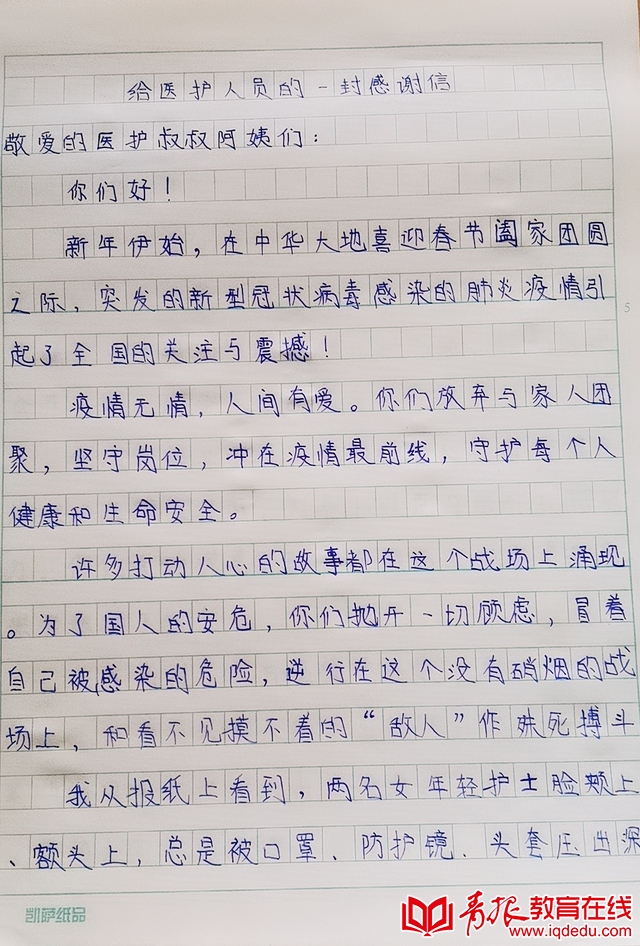 给医护人员的一封感谢信
敬爱的医护叔叔阿姨们：
你们好！
新年伊始，在中华大地喜迎春节阖家团圆
之际，突发的新型冠状病毒感染的肺炎疫情引
起了全国的关注与震撼！
疫情无情，人间有爱。你们放弃与家人团
聚，坚守岗位，冲在疫情最前线，守护每个人
健康和生命安全。
许多打动人心的故事都在这个战场上涌现
。为了国人的安危，你们抛开一切顾虑，冒着
自己被感染的危险，逆行在这个没有硝烟的战
场上，和看不见摸不着的“敌人”作殊死搏斗
我从报纸上看到，两名女年轻护士脸颊上
、额头上，总是被口罩、防护镜、头套压出深
5
凯萨纸品
青报教育在线
www.iqdedu.com